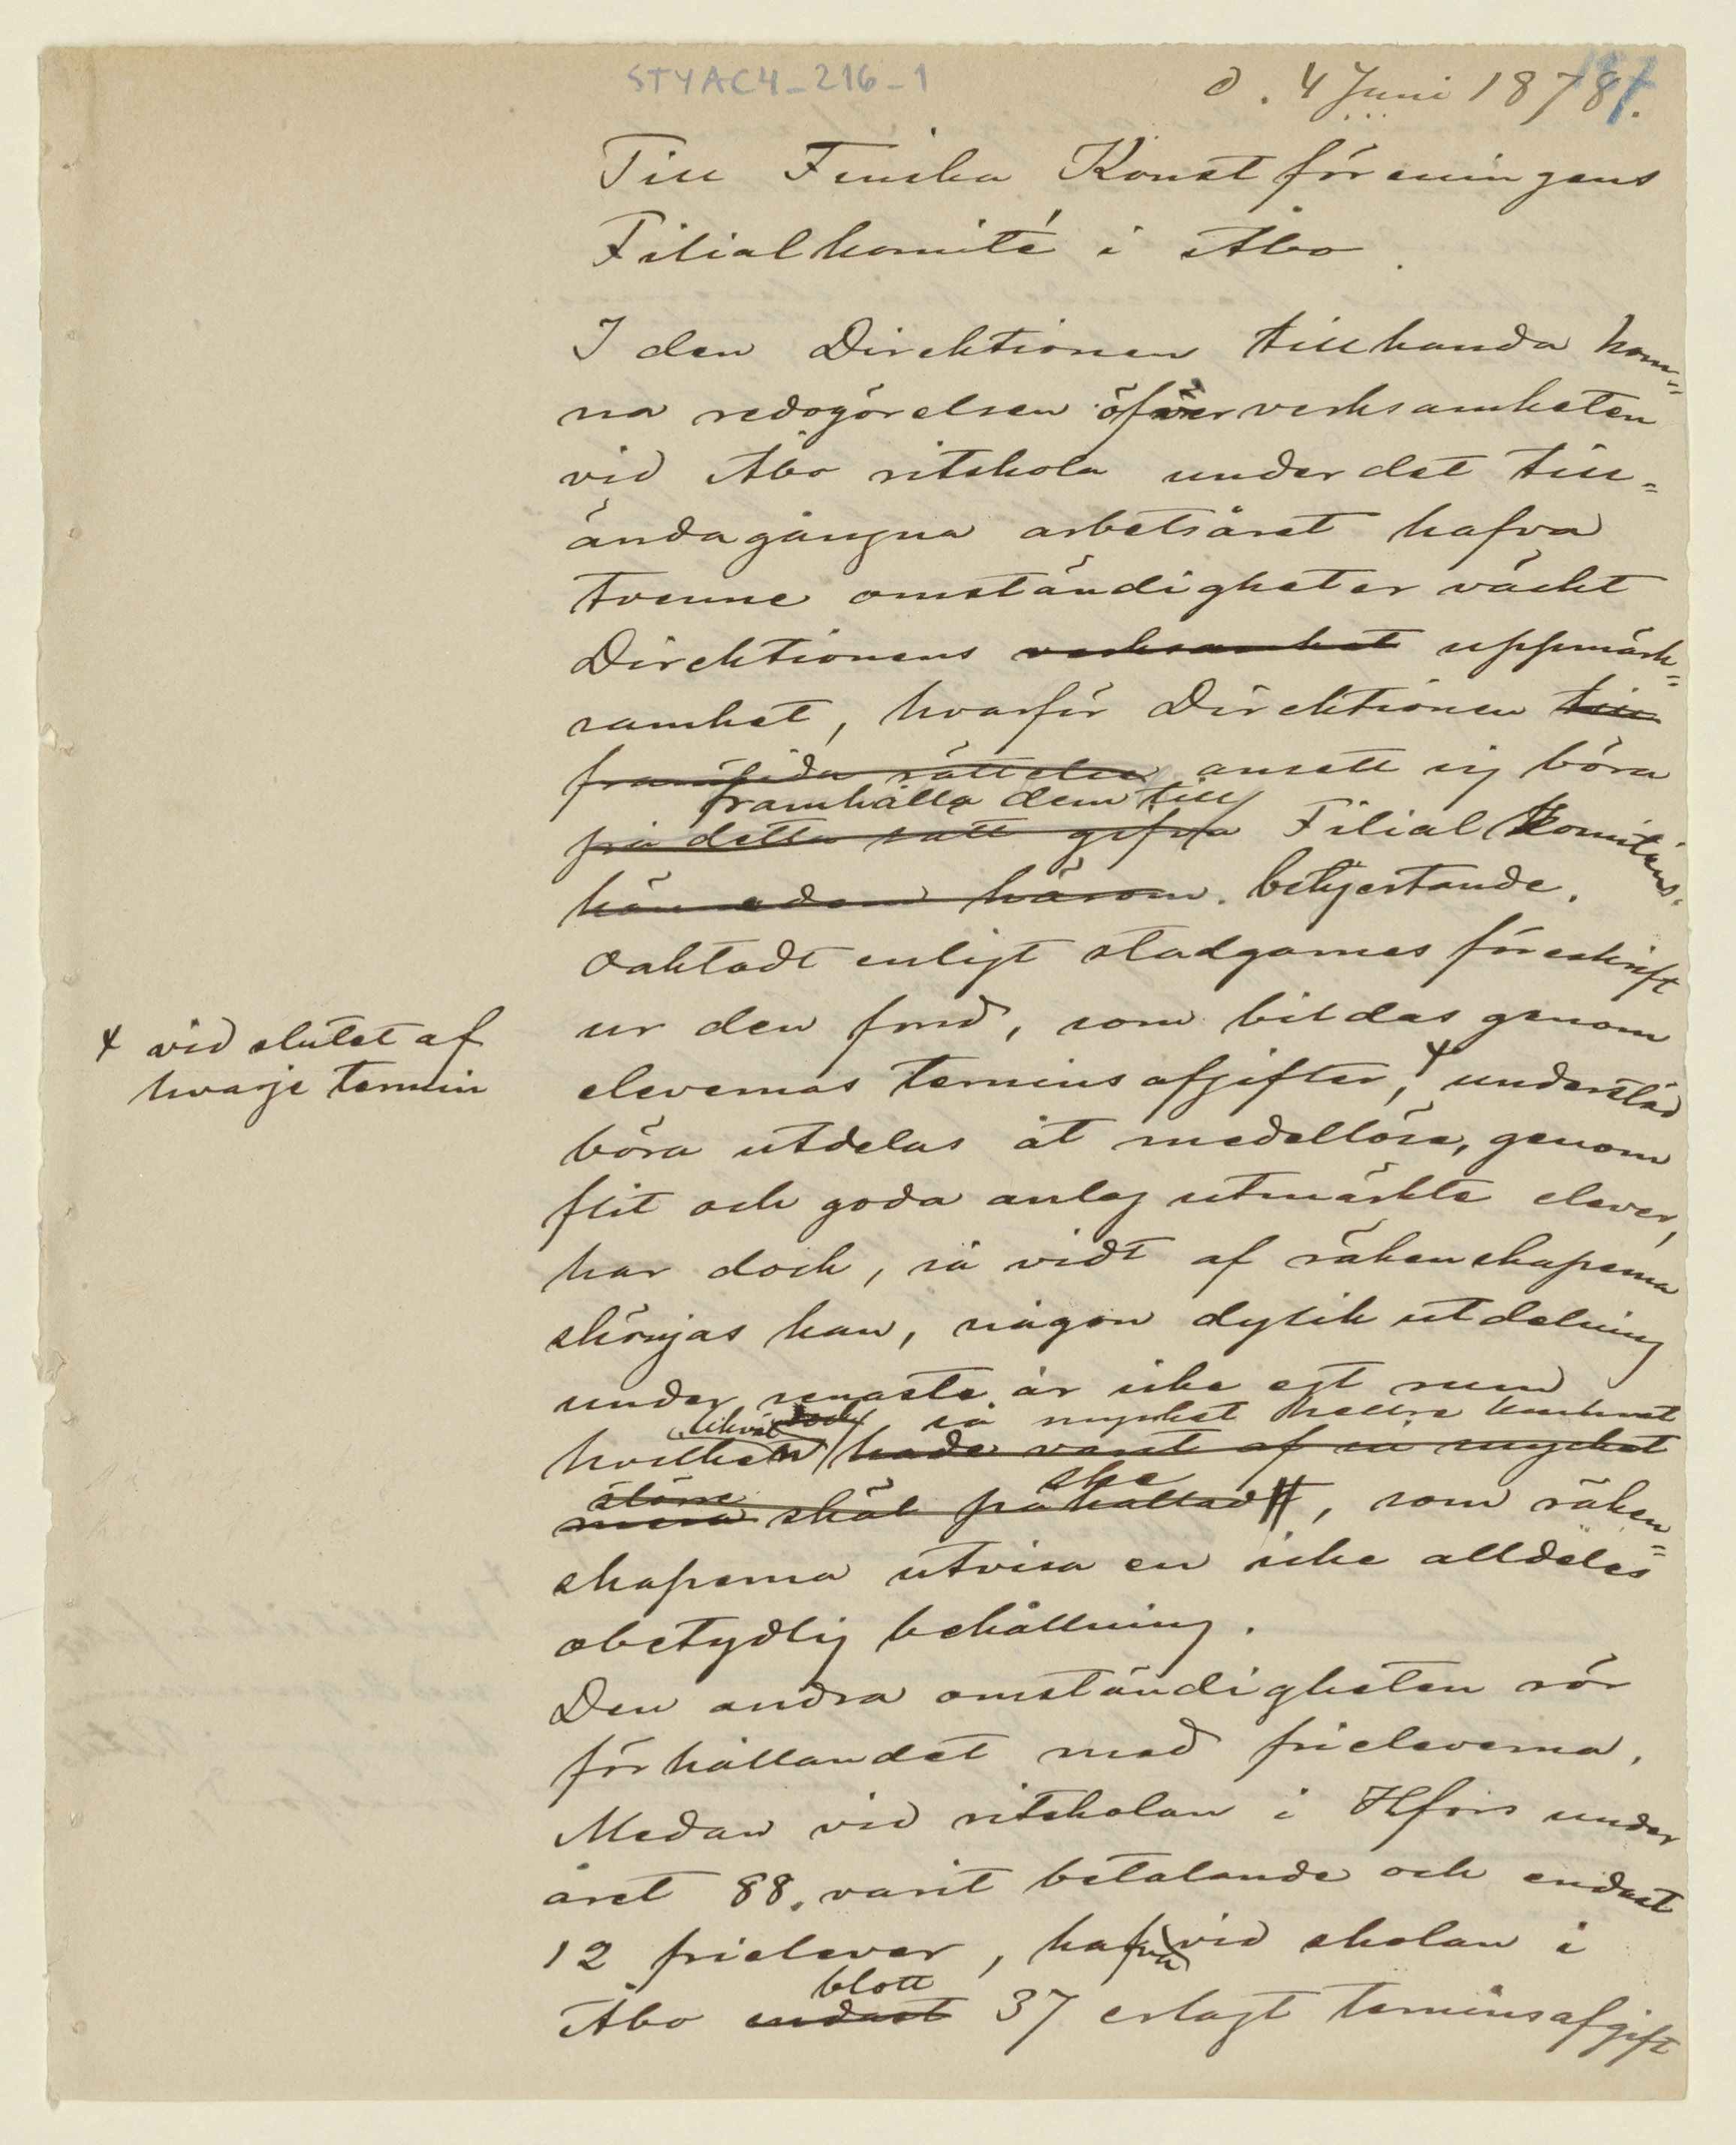 STYAC4_216_1
d. 4 Juni 1878.
Till Finska Konstföreningens
Filialkomité i Åbo.
I den Direktionen tillhanda kom=
na redogörelsen öfver verksamheten
vid Åbo ritskola under det till=
ändagångna arbetsåret hafva
tvenne omständigheter väckt
Direktionens verksamhet uppmärk=
samhet, hvarför Direktionen till
framtida rättelse ansett sig böra
framhålla dem till
på detta sätt gifva Filial Komiténs
härom. behjertande.
Oaktadt enligt stadgarnes föreskrift
ur den fond, som bildas genom
elevernas terminsafgifter, x understöd
x vid slutet af
hvarje termin
böra utdelas åt medellösa, genom
flit och goda anlag utmärkta elever,
har dock, så vidt af räkenskaperna
skönjas kan, någon dylik utdelning
under senaste år icke egt rum
likväl dock så mycket hellre kunnat
hvilken hade varit af så mycket
ske
större
mera skäl påkalladt, som räken=
skaperna utvisa en icke alldeles
obetydlig behållning.
Den andra omständigheten rör
förhållandet med frieleverna.
Medan vid ritskolan i Hfors under
året 88. varit betalande och endast
12 frielever, hafva vid skolan i
blott
Åbo endast 37 erlagt terminsafgift